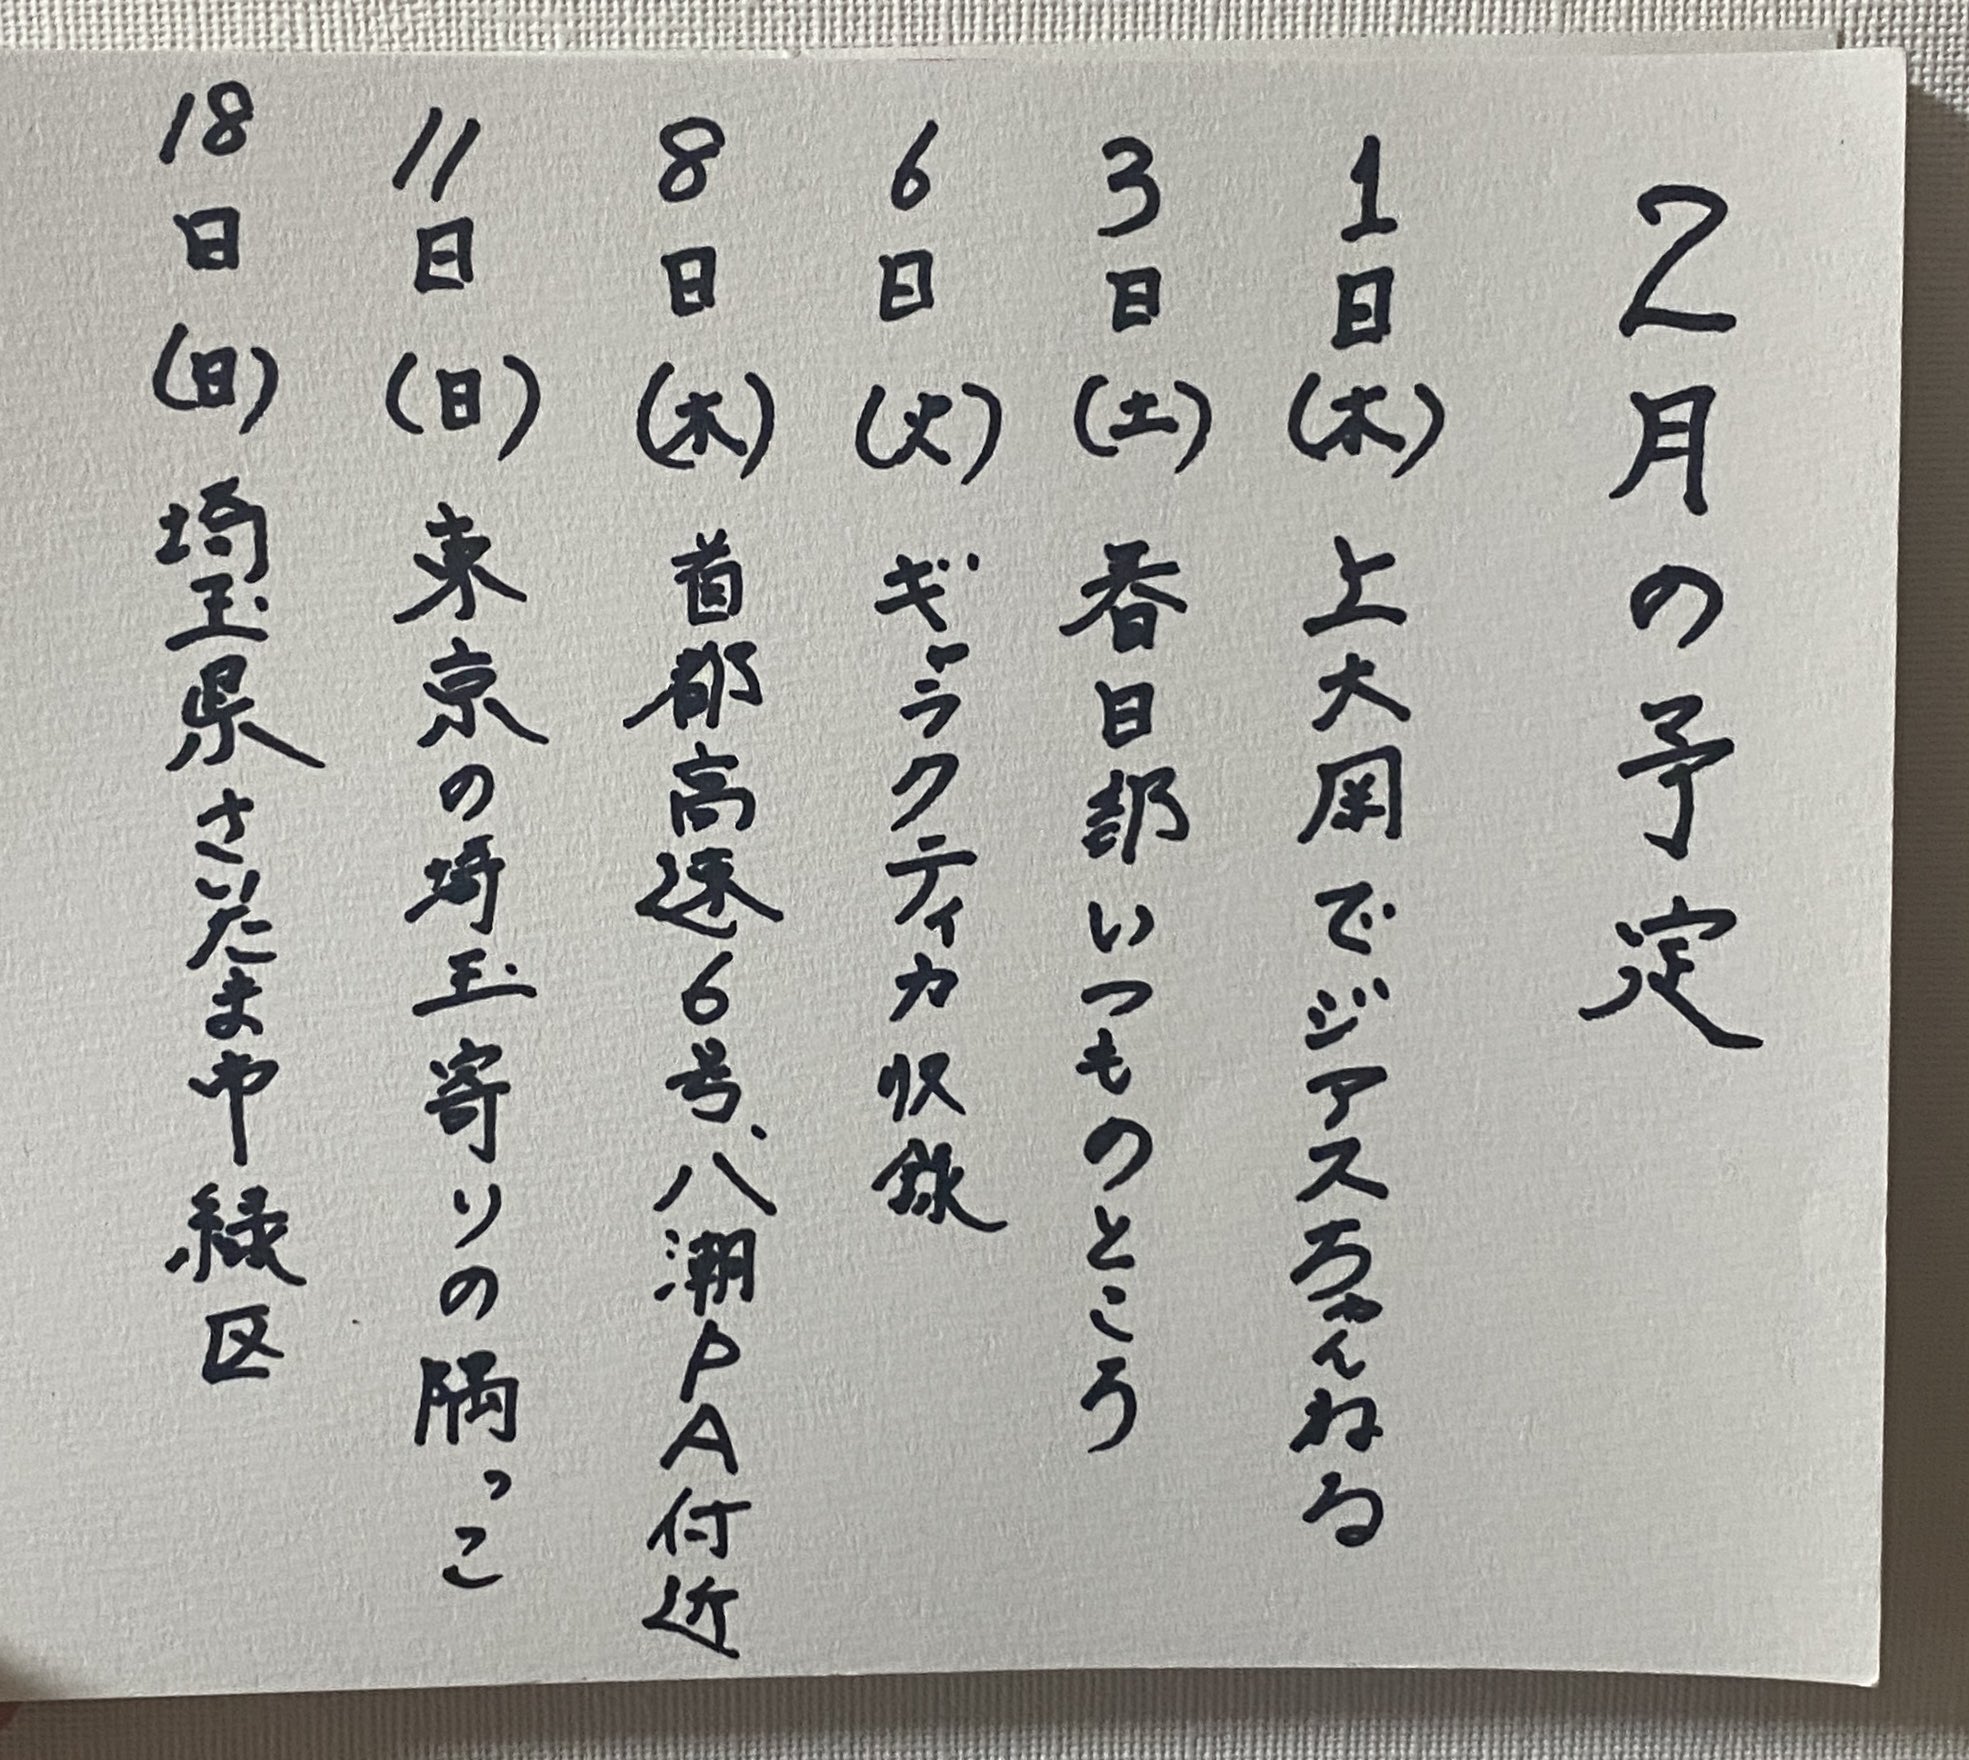 2月の予定
1日(木)上大岡でジアスちゃんねる
3日(土)春日部いつものところ
6日(火)ギャラクティカ収録
8日(木)首都高速6号、八潮PA付近
11日(日)東京の埼玉寄りの隅っこ
18日(日)埼玉県さいたま市緑区